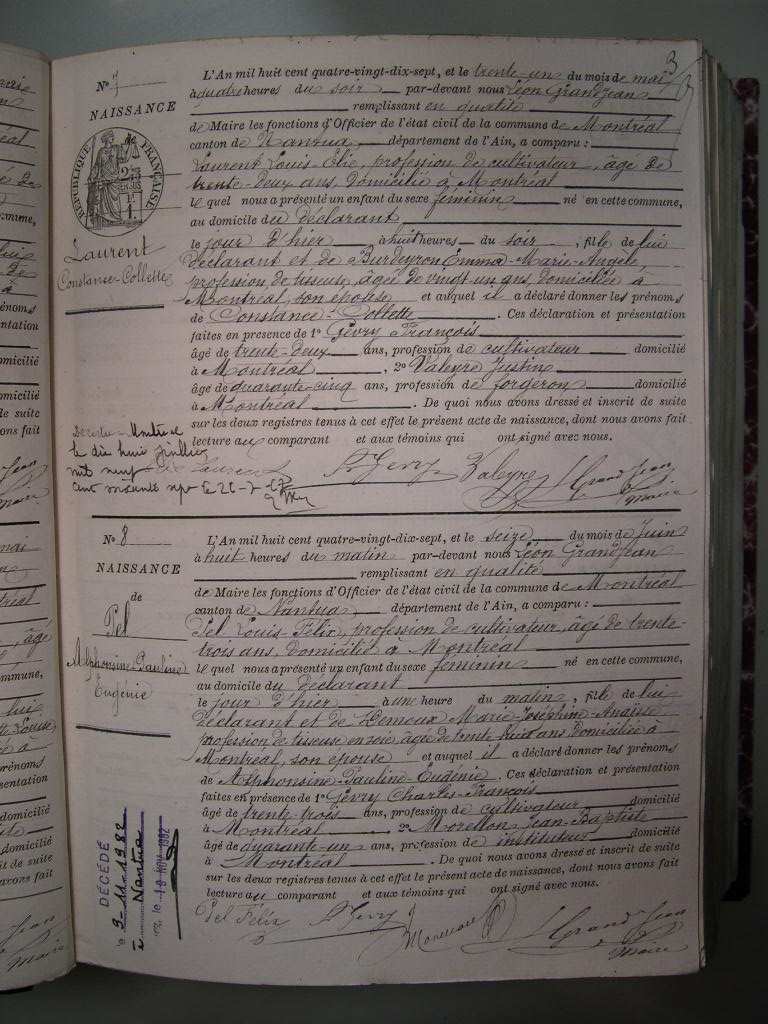 3
N° 7
NAISSANCE
de
RÉPUBLIQUE FRANÇAISE
Laurent
Constance-Collette
L'An mil huit cent quatre-vingt-dix-sept, et le trente-un du mois de mai
à quatre heures du soir par-devant nous Léon Grandjean
remplissant en qualité
de Maire les fonctions d'Officier de l'état civil de la commune de Montréal
canton de Nantua département de l'Ain, a comparu :
Laurent Louis-Elie, profession de cultivateur, âgé de
trente-deux ans, domicilié à Montréal
lequel nous a présenté un enfant du sexe féminin né en cette commune,
au domicile du déclarant
le jour d'hier à huit heures du soir, fille de lui
déclarant et de Burdeyron Emma-Marie-Angèle,
profession de tisseuse, âgée de vingt-un ans, domiciliée à
Montréal, son épouse et auquel il a déclaré donner les prénoms
de Constance-Collette. Ces déclaration et présentation
faites en présence de 1° Gévry François
âgé de trente-deux ans, profession de cultivateur domicilié
à Montréal, 2° Valeyre Justin
âgé de quarante-cinq ans, profession de forgeron domicilié
à Montréal. De quoi nous avons dressé et inscrit de suite
sur les deux registres tenus à cet effet le présent acte de naissance, dont nous avons fait
lecture au comparant et aux témoins qui ont signé avec nous.
le dix huit juillet
mil neuf
Laurent Gevry Valeyre L Grandjean
maire
N° 8
NAISSANCE
de
Pel
Alphonsine-Pauline
Eugénie
L'An mil huit cent quatre-vingt-dix-sept, et le seize du mois de Juin
à huit heures du matin par-devant nous Léon Grandjean
remplissant en qualité
de Maire les fonctions d'Officier de l'état civil de la commune de Montréal
canton de Nantua département de l'Ain, a comparu :
Pel Louis-Félix, profession de cultivateur, âgé de trente-
trois ans, domicilié à Montréal
lequel nous a présenté un enfant du sexe féminin né en cette commune,
au domicile du déclarant
le jour d'hier à une heure du matin, fille de lui
déclarant et de Marie-Joséphine-Anaïse
profession de tisseuse en soie, âgée de trente huit ans domiciliée à
Montréal, son épouse et auquel il a déclaré donner les prénoms
de Alphonsine-Pauline-Eugénie. Ces déclaration et présentation
faites en présence de 1° Gévry Charles-François
âgé de trente-trois ans, profession de cultivateur domicilié
à Montréal. 2° Morellon Jean-Baptiste
âgé de quarante-un ans, profession de instituteur domicilié
à Montréal. De quoi nous avons dressé et inscrit de suite
sur les deux registres tenus à cet effet le présent acte de naissance, dont nous avons fait
lecture au comparant et aux témoins qui ont signé avec nous.
DÉCÉDÉ
le 3-11-1982
à Nantua
le 18 NOV. 1982
Pel Félix Gevry L Grandjean
Maire